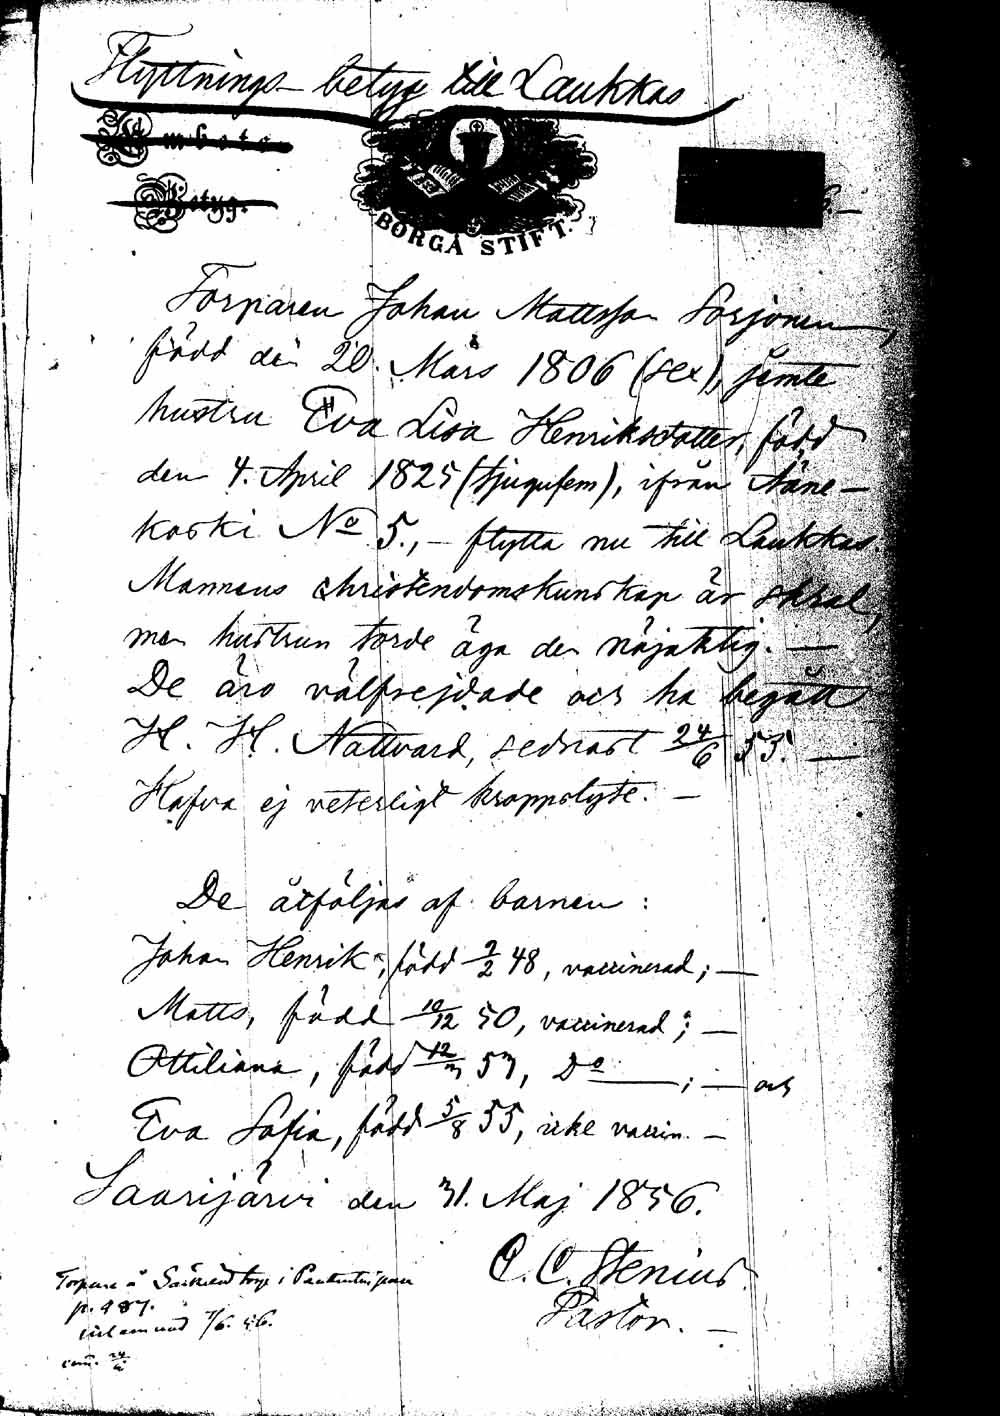 Flyttnings-betyg till Laukkas
Ambets-
Betyg.
BORGÅ STIFT.
Torparen Johan Mattsson Sorjonen,
född den 20. Mars 1806 (sex), jemte
hustru Eva Lisa Henriksdotter, född
den 4. April 1825 (tjugufem), ifrån Ääne-
koski No 5., - flytta nu till Laukkas.
Mannens christendomskunskap är skral,
men hustrun torde äga den nöjaktig. —
De äro välfrejdade och ha begått
H. H. Nattvard, sednast 24/6 55. —
Hafva ej veterligt kroppslyte. —
De åtföljas af barnen:
Johan Henrik, född 2/2 48, vaccinerad; —
Matts, född 10/12 50, vaccinerad; —
Ottiliana, född 12/3 53, Do —; — och
Eva Sofia, född 5/8 55, icke vaccin. —
Saarijärvi den 31. Maj 1856.
C. C. Stenius
Pastor. —
Torpare å i
p. 487.
7/6. 56.